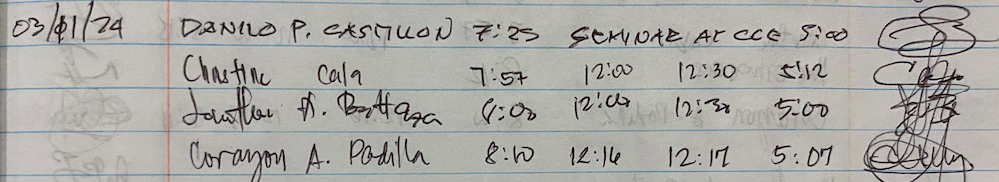 03/01/24 DANILO P. CASTILLON 7:25 SEMINAR AT CCE 5:00
Christine Cala 7:57 12:00 12:30 5:12
Jonathan A. 8:00 12:00 12:30 5:00
Corazon A. Padilla 8:10 12:16 12:17 5:07